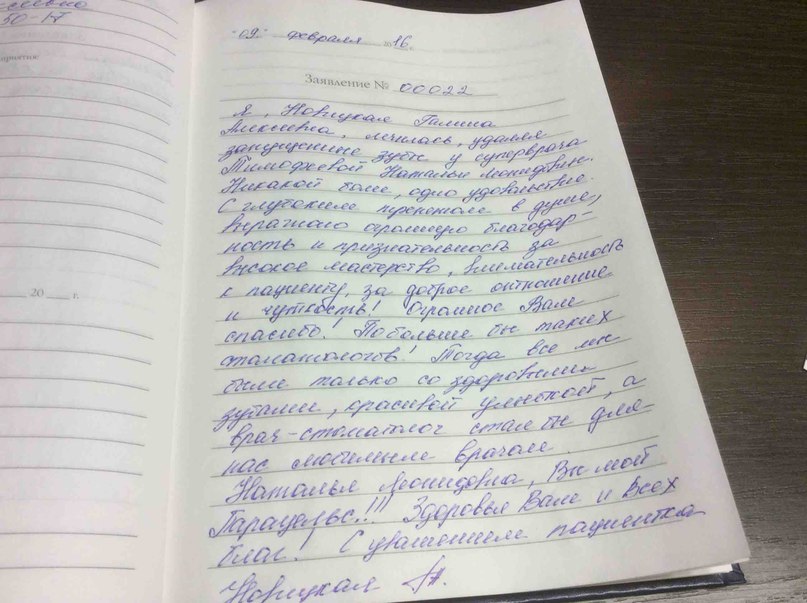 50-17
приятия:
20 г.
"09" февраля 2016 г.
Заявление № 00022
Я, Новицкая Галина
Алексеевна, лечилась, удаляя
запущенные зубы у суперврача
Тимофеевой Натальи Леонидовны.
Никакой боли, одно удовольствие.
С глубоким в душе,
выражаю огромную благодар-
ность и признательность за
высокое мастерство, внимательность
к пациенту, за доброе отношение
и чуткость! Огромное Вам
спасибо! Побольше бы таких
стоматологов! Тогда все мы
были только со здоровыми
зубами, красивой улыбкой, а
врач-стоматолог стал бы для
нас любимым врачом
Наталья Леонидовна, Вы мой
Парацельс!!! Здоровья Вам и всех
благ! С уважением пациентка
Новицкая